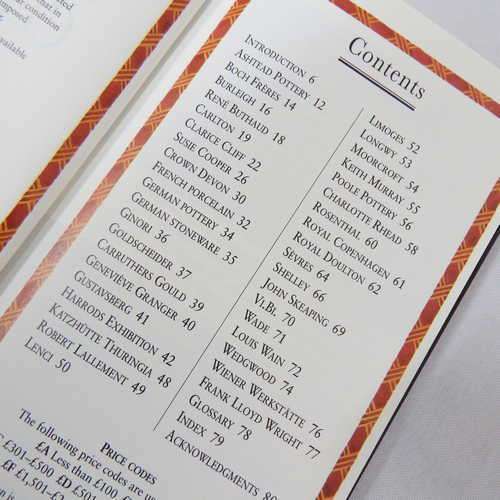 that in
condition
mposed
available
Contents
Introduction 6
Ashtead Pottery 12
Boch Frères 14
Burleigh 16
René Buthaud 18
Carlton 19
Clarice Cliff 22
Susie Cooper 26
Crown Devon 30
French porcelain 32
German pottery 34
German stoneware 35
Ginori 36
Goldscheider 37
Carruthers Gould 39
Geneviève Granger 40
Gustavsberg 41
Harrods Exhibition 42
Katzhütte Thuringia 48
Robert Lallement 49
Lenci 50
Limoges 52
Longwy 53
Moorcroft 54
Keith Murray 55
Poole Pottery 56
Charlotte Rhead 58
Rosenthal 60
Royal Copenhagen 61
Royal Doulton 62
Sèvres 64
Shelley 66
John Skeaping 69
VLBL 70
Wade 71
Louis Wain 72
Wedgwood 74
Wiener Werkstätte 76
Frank Lloyd Wright 77
Glossary 78
Index 79
Acknowledgments 80
Price codes
The following price codes are us
£A Less than £100
£301–£500 £D £501
£F £1,501–